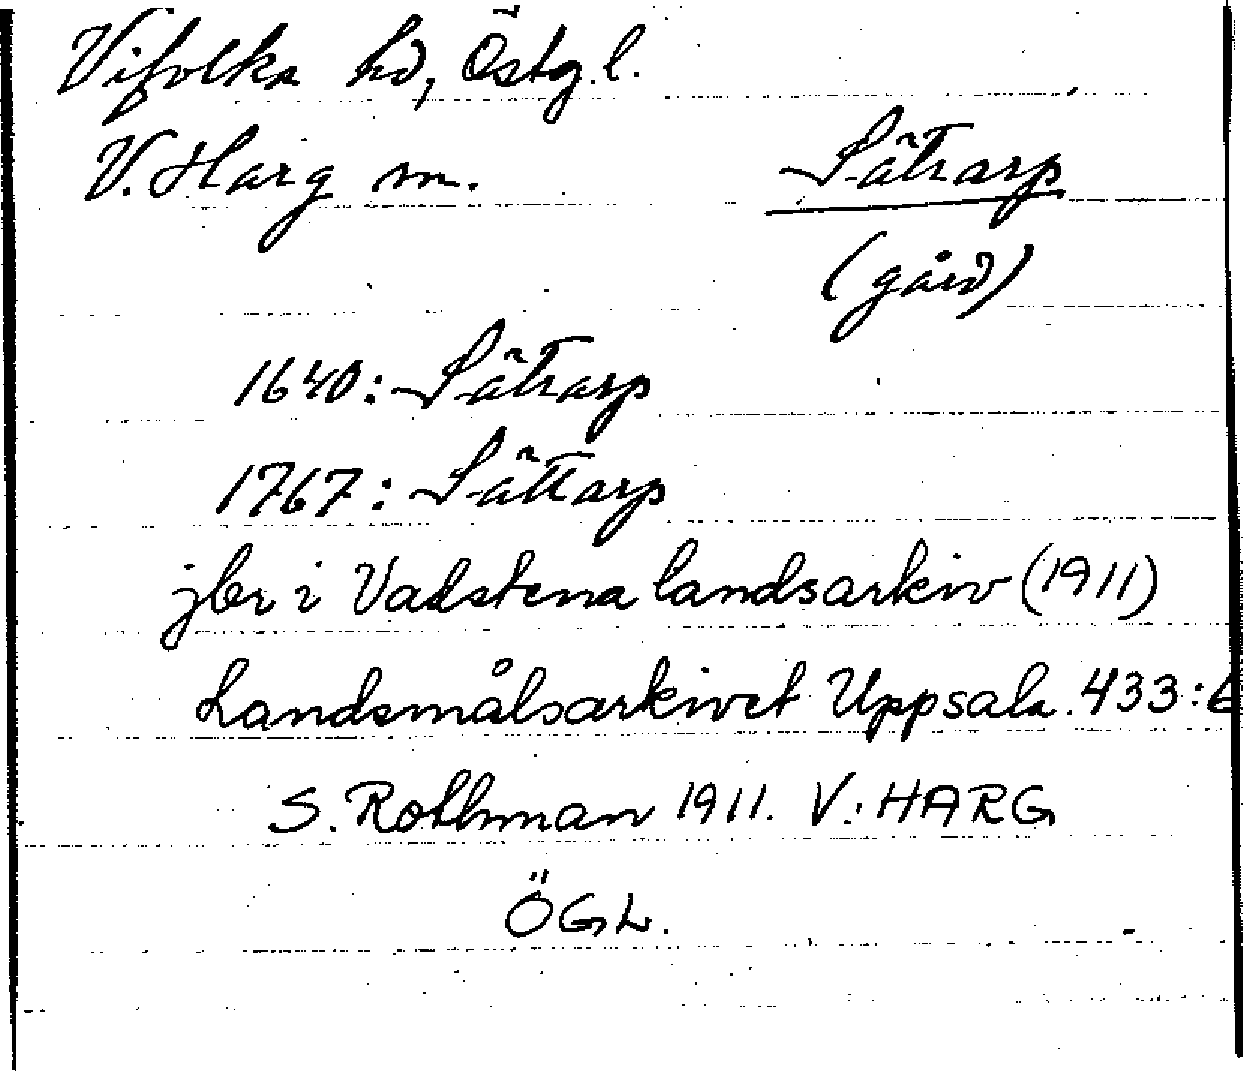 Vifolka hd, Östg.l.
V. Harg sn.
Sätrarp
(gård)
1640: Sätrarp
1767: Sättarp
jbr i Vadstena landsarkiv (1911)
Landsmålsarkivet Uppsala 433:6
S. Rothman 1911. V. HARG
ÖGL.